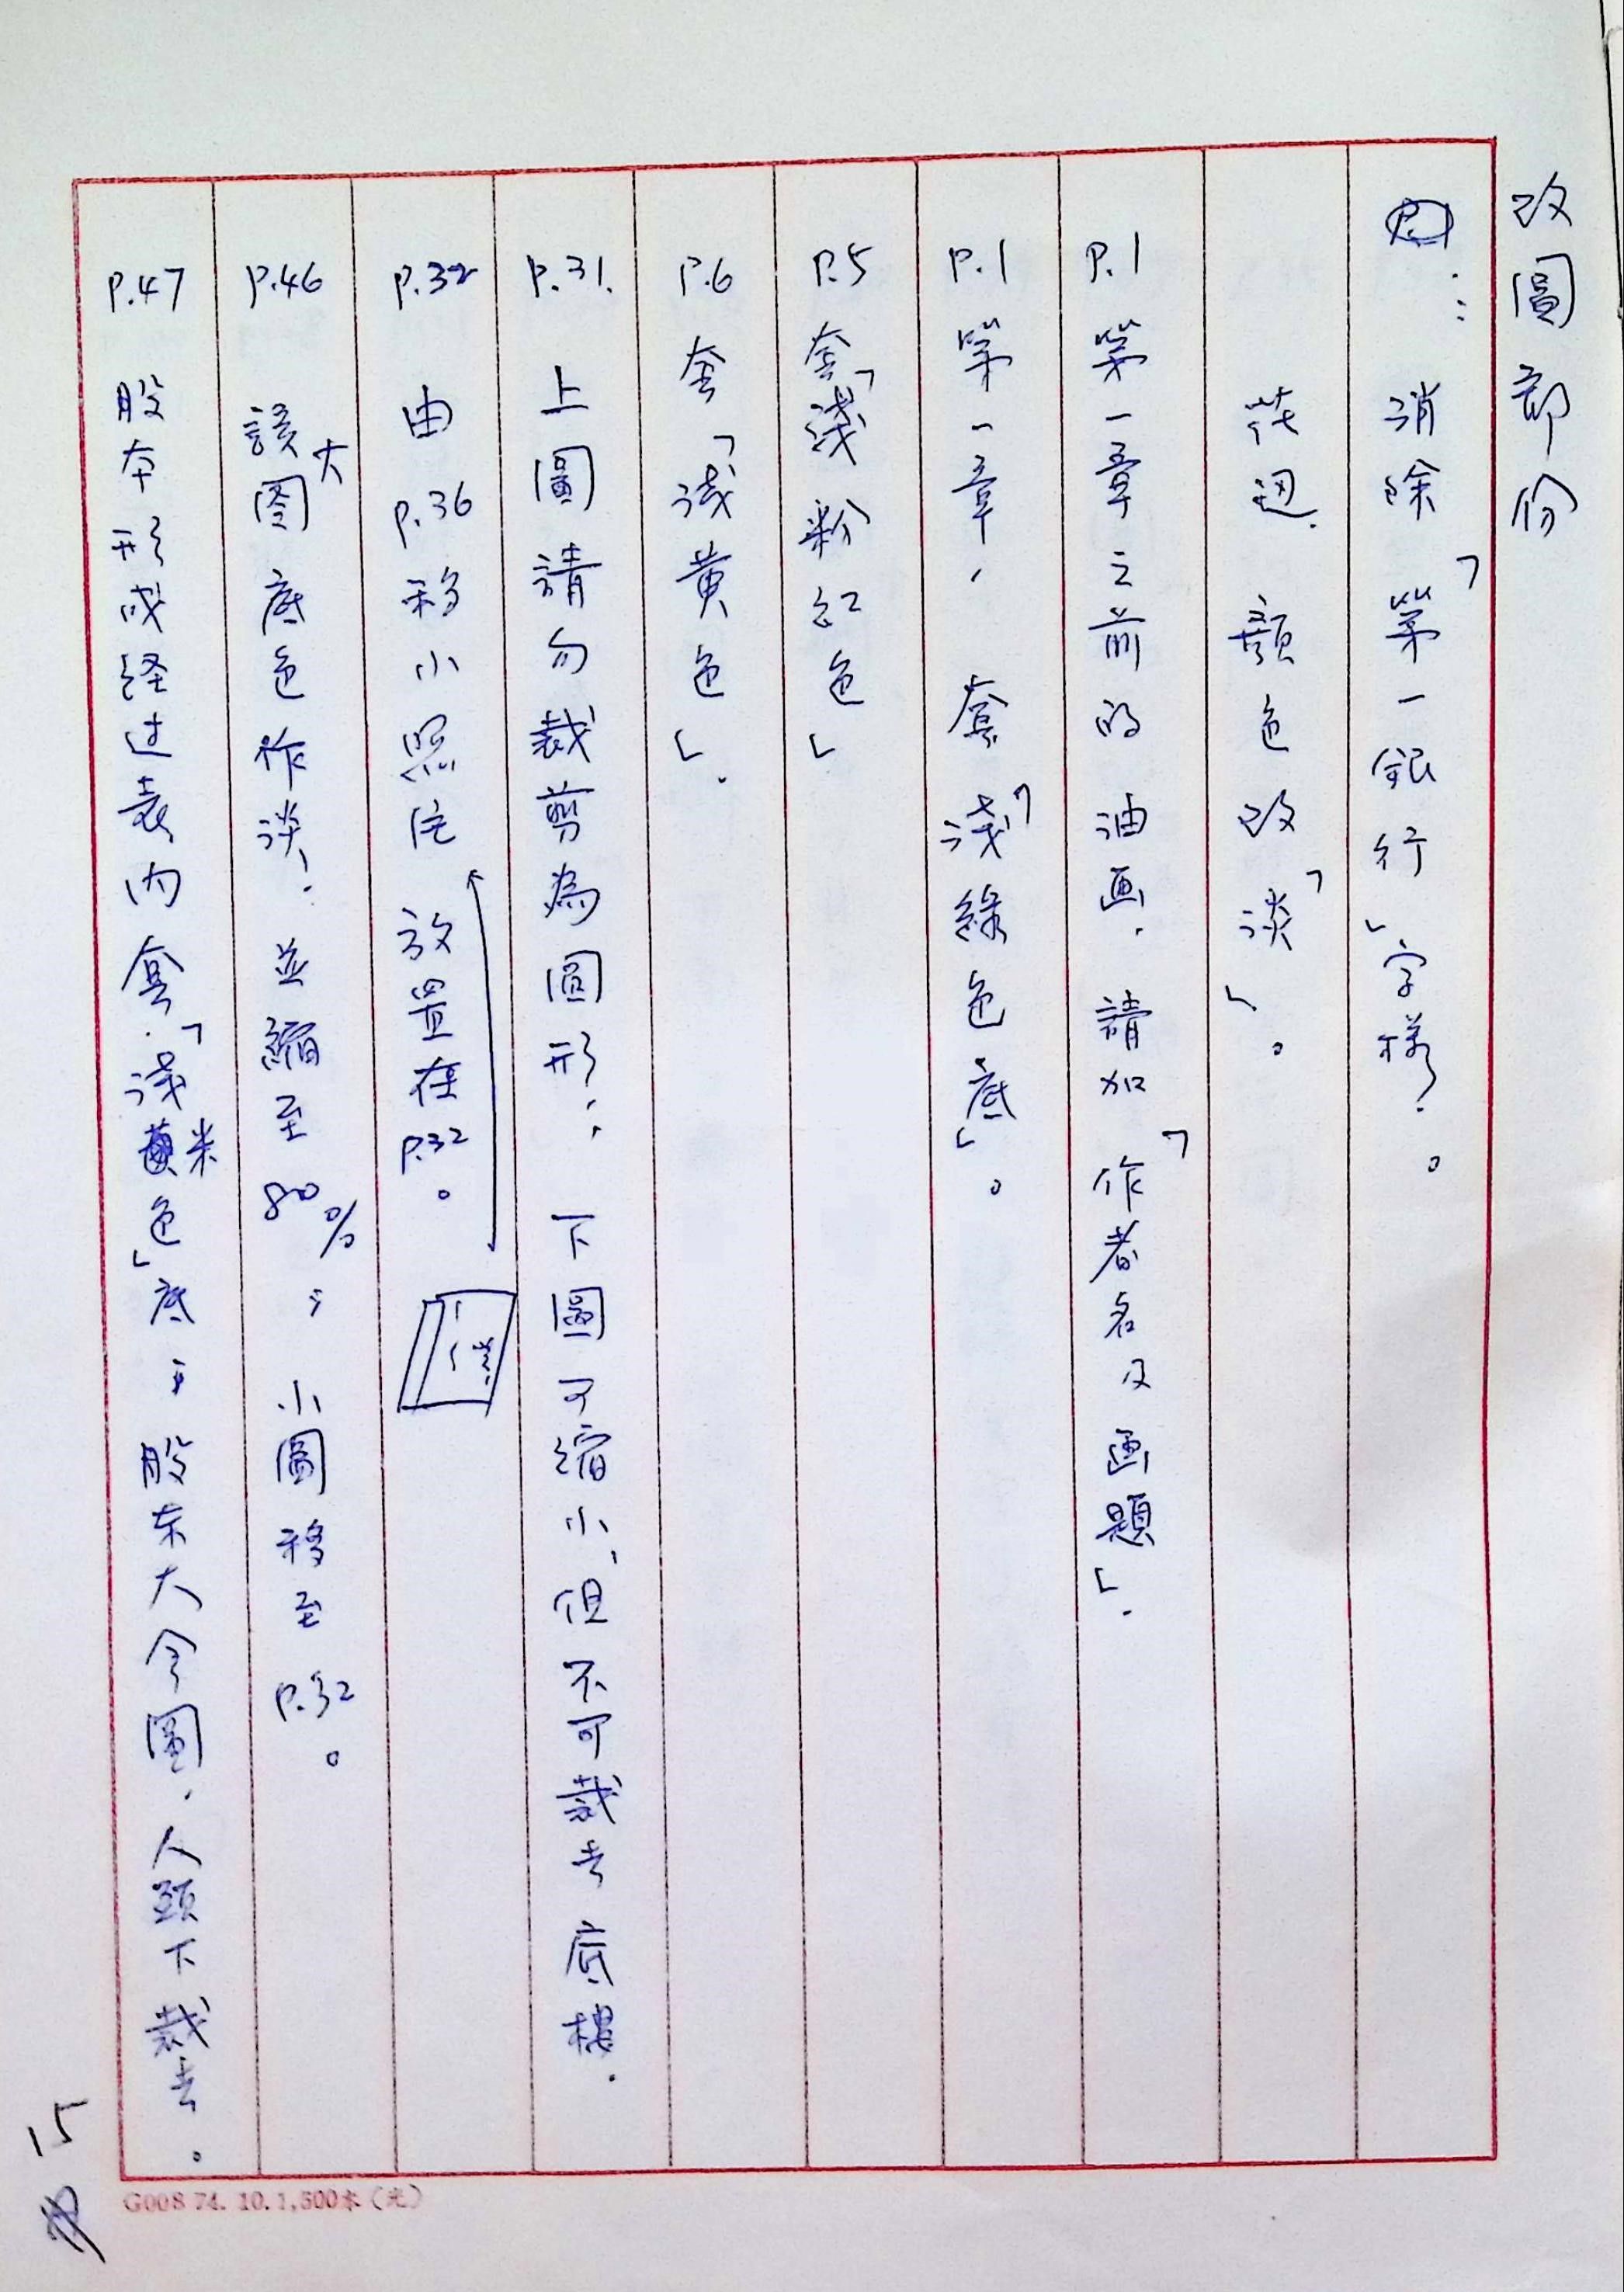 改圖部份
：消除「第一銀行」字樣。
花邊．顏色改「淡」。
P.1 第一章之前的油画．請加「作者名及画題」．
P.1 第一章，套「淺綠色底」。
P.5 套「淺粉紅色」
P.6 套「淺黃色」．
P.31. 上圖請勿裁剪為圓形；下圖可縮小，但不可裁去底樓．
P.32 由P.36移小照片放置在P.32。
P.46 該大圖底色作淡！並縮至80%；小圖移至P.32。
P.47 股本形成経过表内套「淺米色」底；股东大会圖．人頭下裁去。
15
G008 74. 10. 1,500本（光）